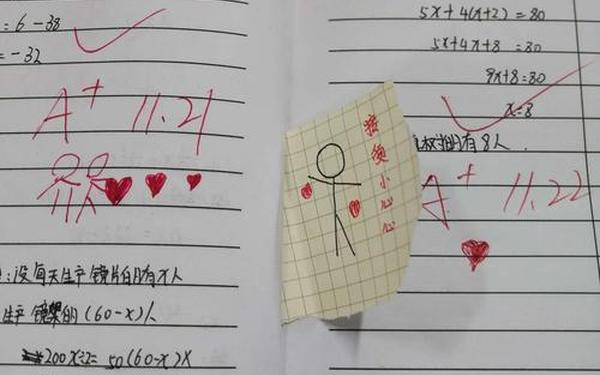 = 6 - 38
= -32
A+ 11.21
:没每天生产镜片的有x人
生产镜架的(60-x)人
200x÷2= 50(60-x)x
接受小心心
5x+4(x+2)=80
5x+4x+8 =80
9x+8=80
x=8
有8人.
A+ 11.22